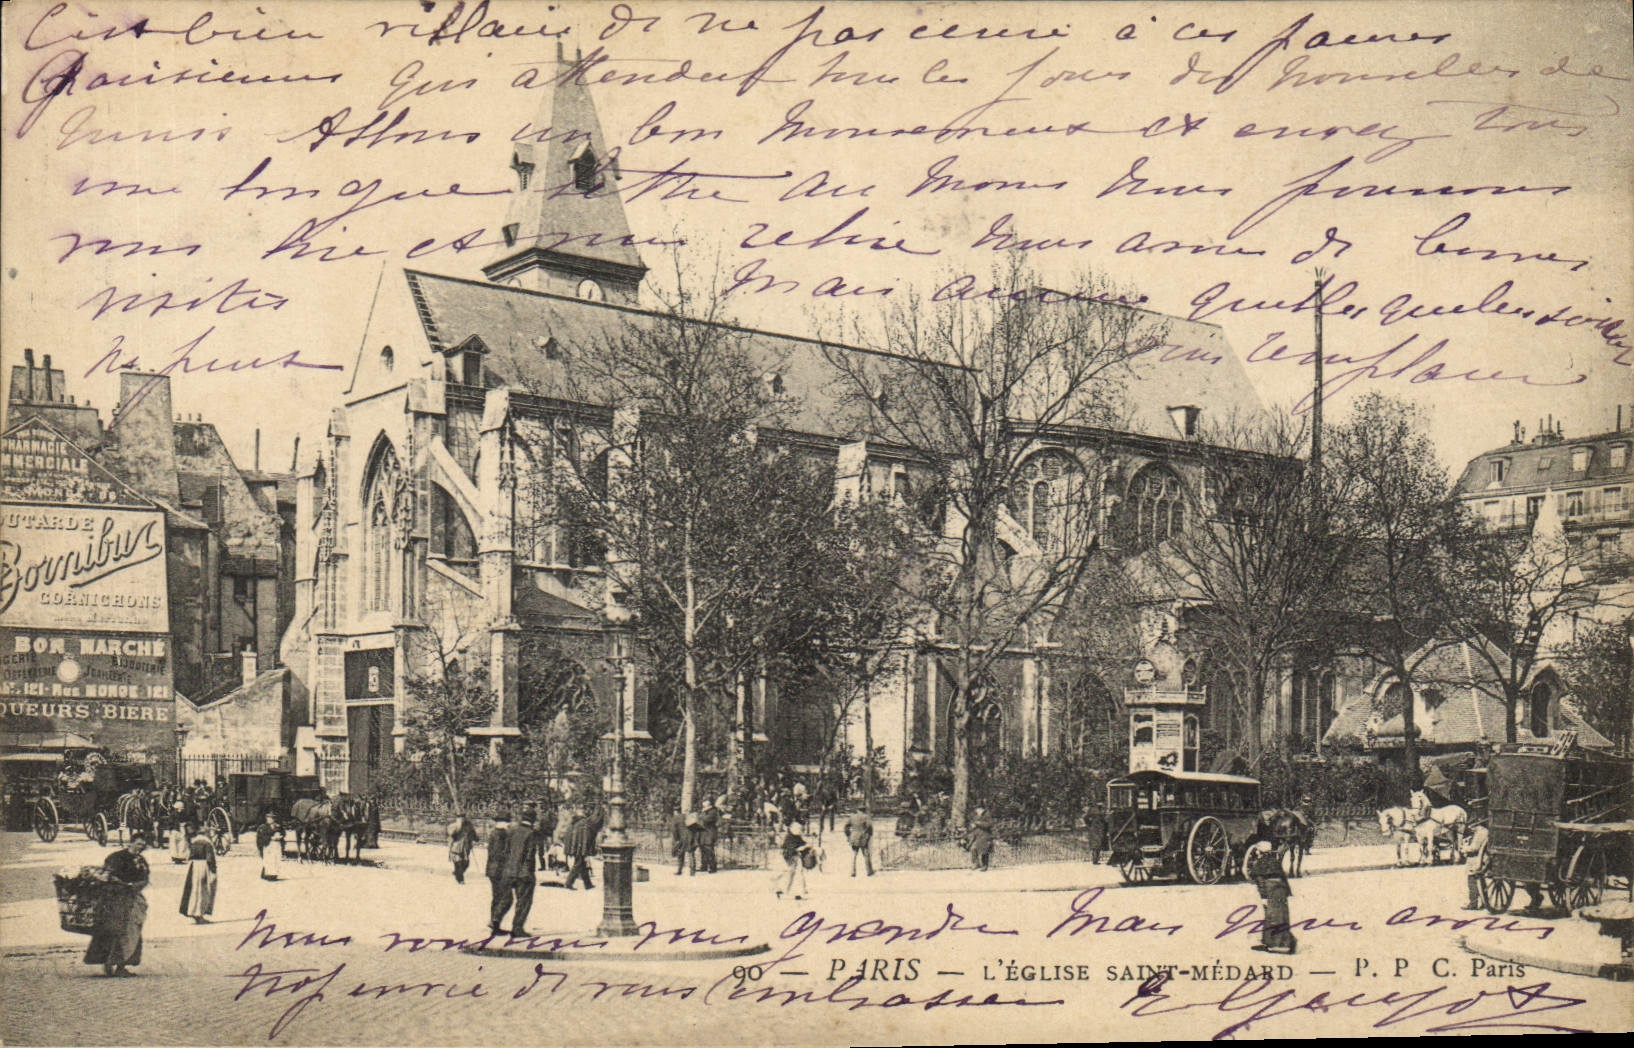 C'est bien vilain de ne pas ecrire à ces pauvres
Parisiennes qui attendent tous les jours des nouvelles de
Allons un bon mouvement et envoyez nous
une longue lettre au moins nous pourrons
vous lire et vous relire nous avons de bonnes
visites mais aucune quelles quelles soient
ne peut vous remplacer
MERCIALE
OUTARDE
Bornibus
CORNICHONS
BON MARCHÉ
BIJOUTERIE
121 · RUE MONGE · 121
QUEURS · BIERE
Nous voudrions vous gronder mais nous avons
trop envie de vous embrasser
90 — PARIS — L'ÉGLISE SAINT-MÉDARD — P. P. C. Paris